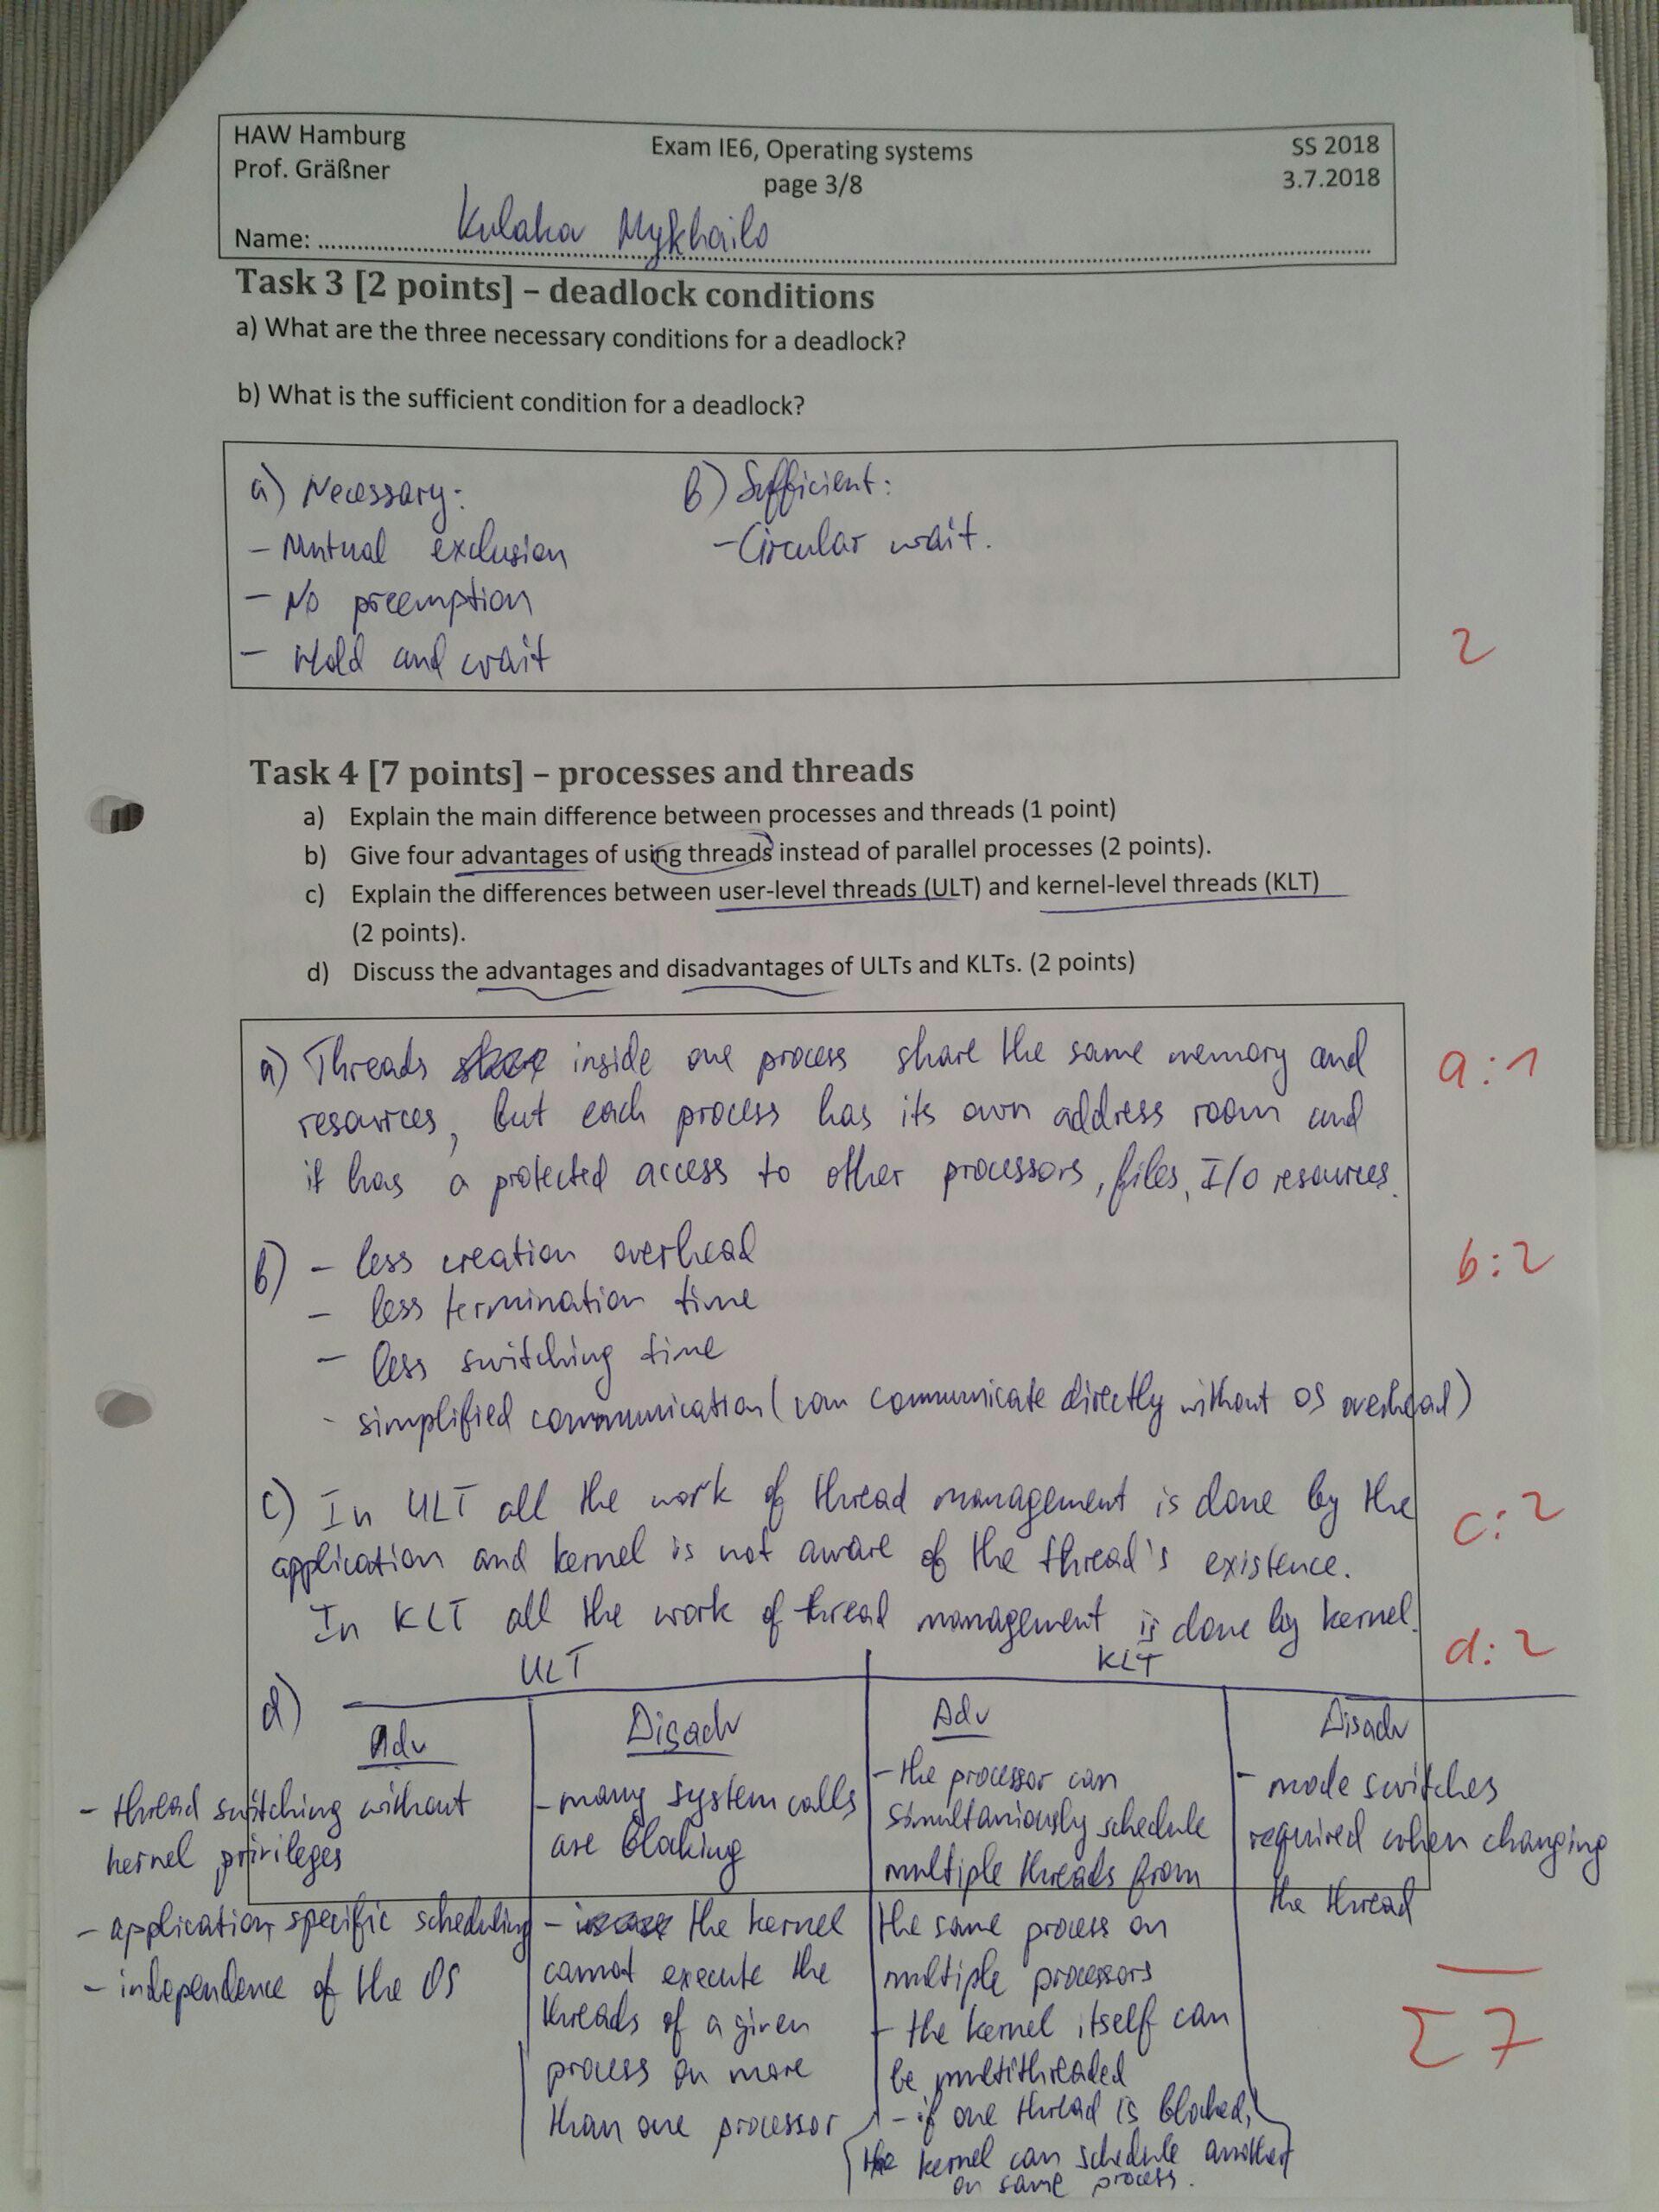 HAW Hamburg
Prof. Gräßner
Exam IE6, Operating systems
page 3/8
SS 2018
3.7.2018
Name: Kulaka Mykhailo
Task 3 [2 points] – deadlock conditions
a) What are the three necessary conditions for a deadlock?
b) What is the sufficient condition for a deadlock?
a) Necessary:
- Mutual exclusion
- No preemption
- Hold and wait
b) Sufficient:
- Circular wait.
2
Task 4 [7 points] – processes and threads
a) Explain the main difference between processes and threads (1 point)
b) Give four advantages of using threads instead of parallel processes (2 points).
c) Explain the differences between user-level threads (ULT) and kernel-level threads (KLT)
(2 points).
d) Discuss the advantages and disadvantages of ULTs and KLTs. (2 points)
a) Threads inside one process share the same memory and
resources, but each process has its own address room and
it has a protected access to other processors, files, I/O resources.
a:1
b) - less creation overhead
- less termination time
- less switching time
- simplified communication (can communicate directly without OS overhead)
b:2
c) In ULT all the work of thread management is done by the
application and kernel is not aware of the thread's existence.
In KLT all the work of thread management is done by kernel.
c:2
d:2
d)
ULT
Adv
- thread switching without
kernel privileges
- application specific scheduling
- independence of the OS
Disadv
- many system calls
are blocking
- the kernel
cannot execute the
threads of a given
process on more
than one processor
KLT
Adv
- the processor can
simultaniously schedule
multiple threads from
the same process on
multiple processors
- the kernel itself can
be multithreaded
- if one thread is blocked,
the kernel can schedule another
on same process.
Disadv
- mode switches
required when changing
the thread
Σ 7